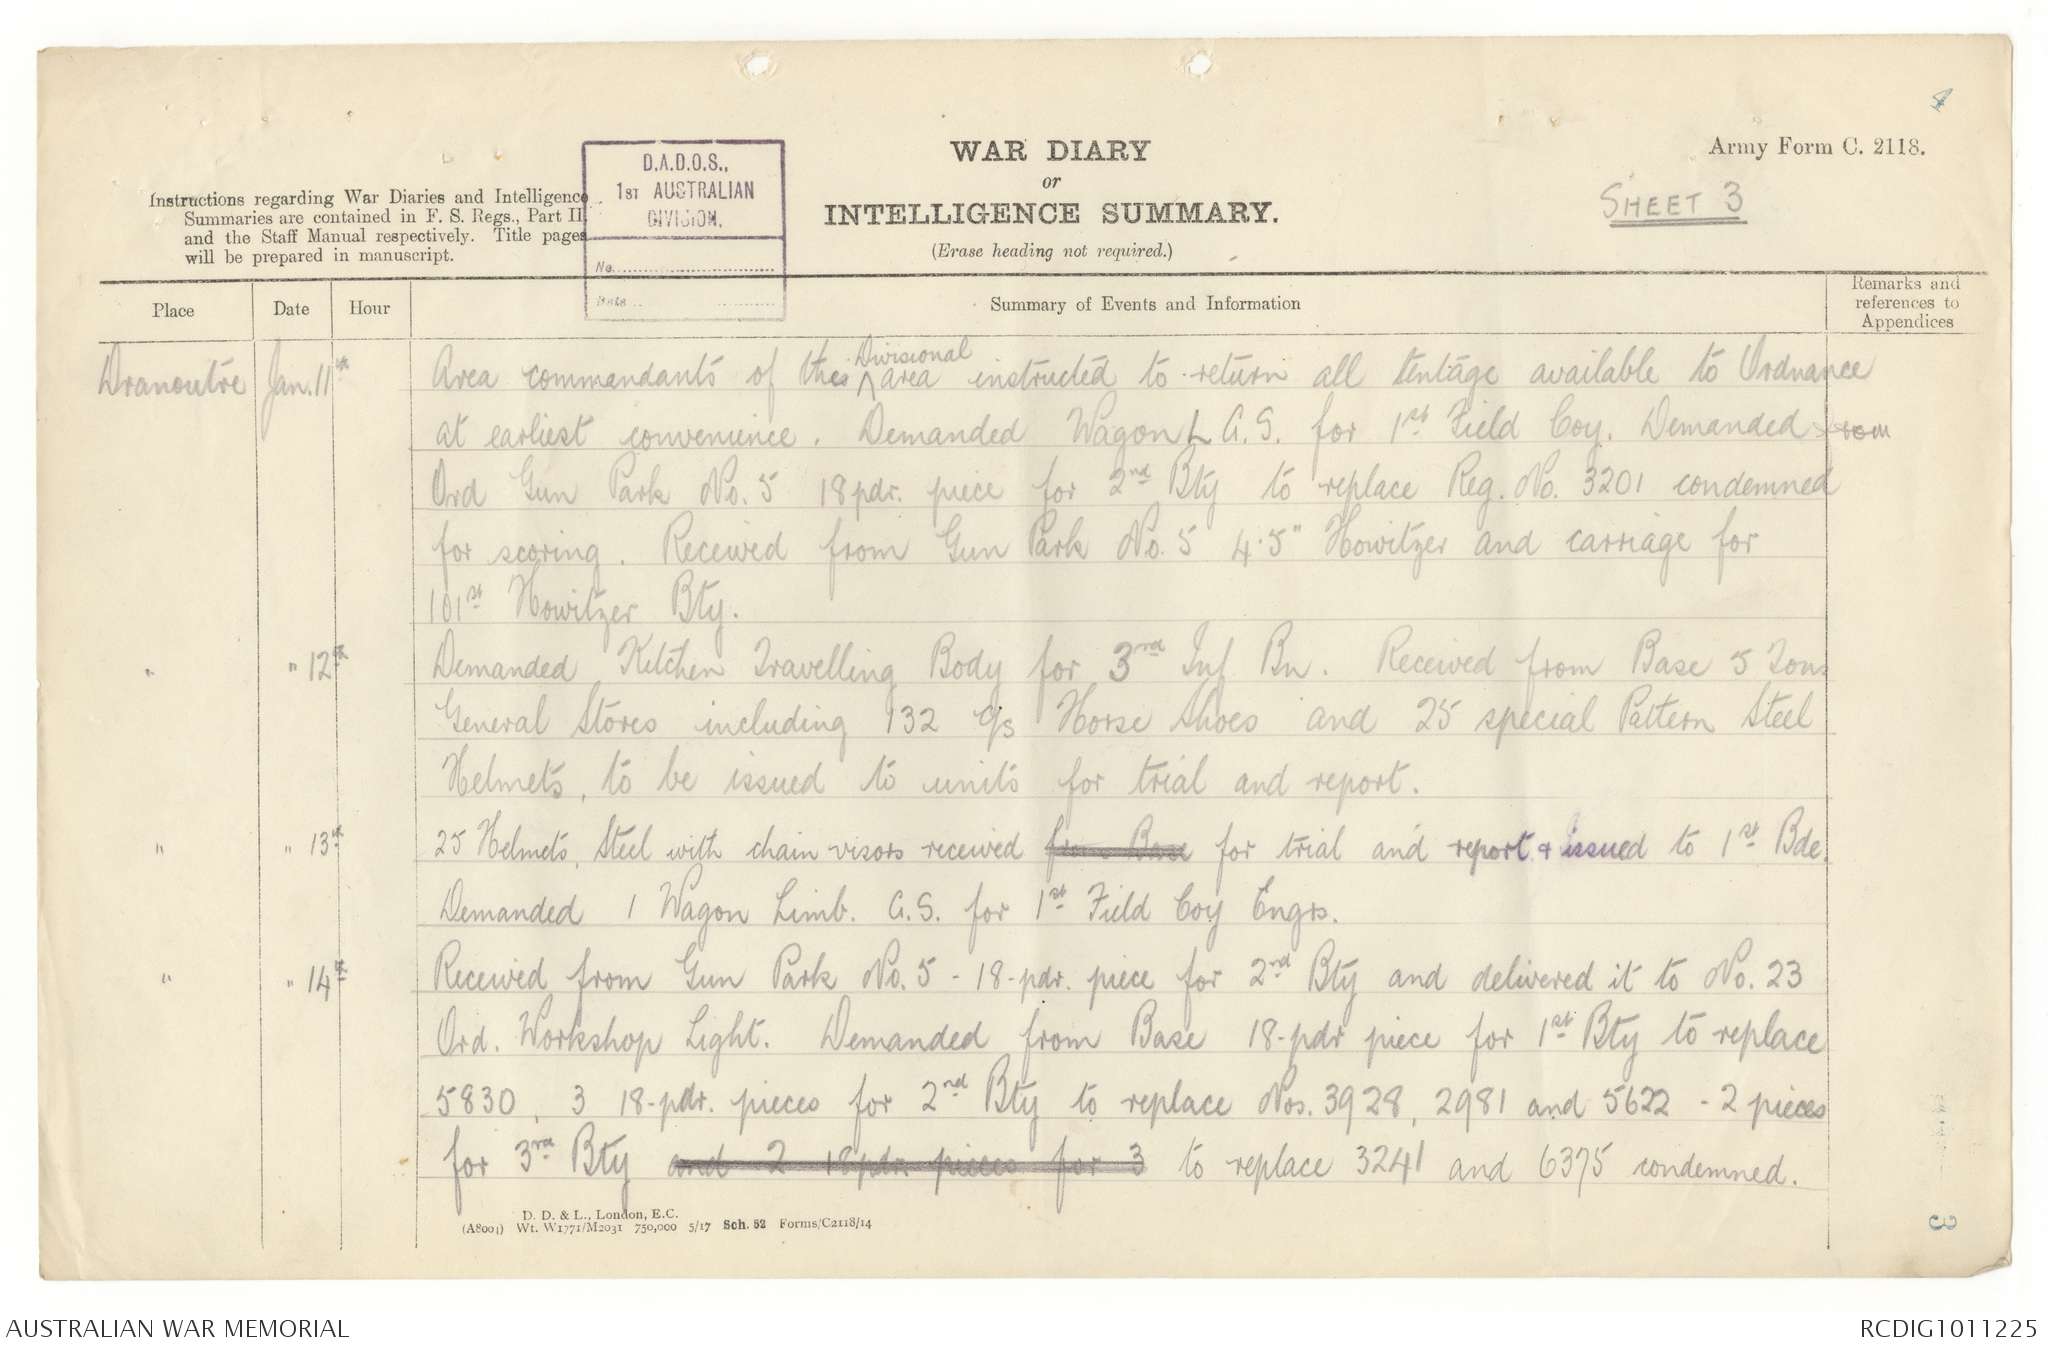 4
Army Form C. 2118.
WAR DIARY
or
INTELLIGENCE SUMMARY.
(Erase heading not required.)
SHEET 3
Instructions regarding War Diaries and Intelligence
Summaries are contained in F. S. Regs., Part II.
and the Staff Manual respectively. Title pages
will be prepared in manuscript.
D.A.D.O.S.,
1ST AUSTRALIAN
DIVISION.
No.
Date
Place
Date
Hour
Summary of Events and Information
Remarks and
references to
Appendices
Dranoutre Jan. 11th Area commandants of this Divisional area instructed to return all tentage available to Ordnance
at earliest convenience. Demanded Wagon L G.S. for 1st Field Coy. Demanded from
Ord Gun Park No. 5 18pdr. piece for 2nd Bty to replace Reg. No. 3201 condemned
for scoring. Received from Gun Park No. 5 4.5" Howitzer and carriage for
101st Howitzer Bty.
" " 12th Demanded Kitchen Travelling Body for 3rd Inf Bn. Received from Base 5 Tons
General Stores including 132 c/s Horse Shoes and 25 special Pattern Steel
Helmets, to be issued to units for trial and report.
" " 13th 25 Helmets, Steel with chain visors received from Base for trial and report & issued to 1st Bde.
Demanded 1 Wagon Limb. G.S. for 1st Field Coy Engrs.
" " 14th Received from Gun Park No. 5 - 18-pdr. piece for 2nd Bty and delivered it to No. 23
Ord. Workshop Light. Demanded from Base 18-pdr piece for 1st Bty to replace
5830, 3 18-pdr. pieces for 2nd Bty to replace Nos. 3928, 2981 and 5622 - 2 pieces
for 3rd Bty and 2 18pdr. pieces for 3 to replace 3241 and 6375 condemned.
D. D. & L., London, E.C.
(A8001) Wt. W1771/M2031 750,000 5/17 Sch. 52 Forms/C2118/14
3
AUSTRALIAN WAR MEMORIAL
RCDIG1011225